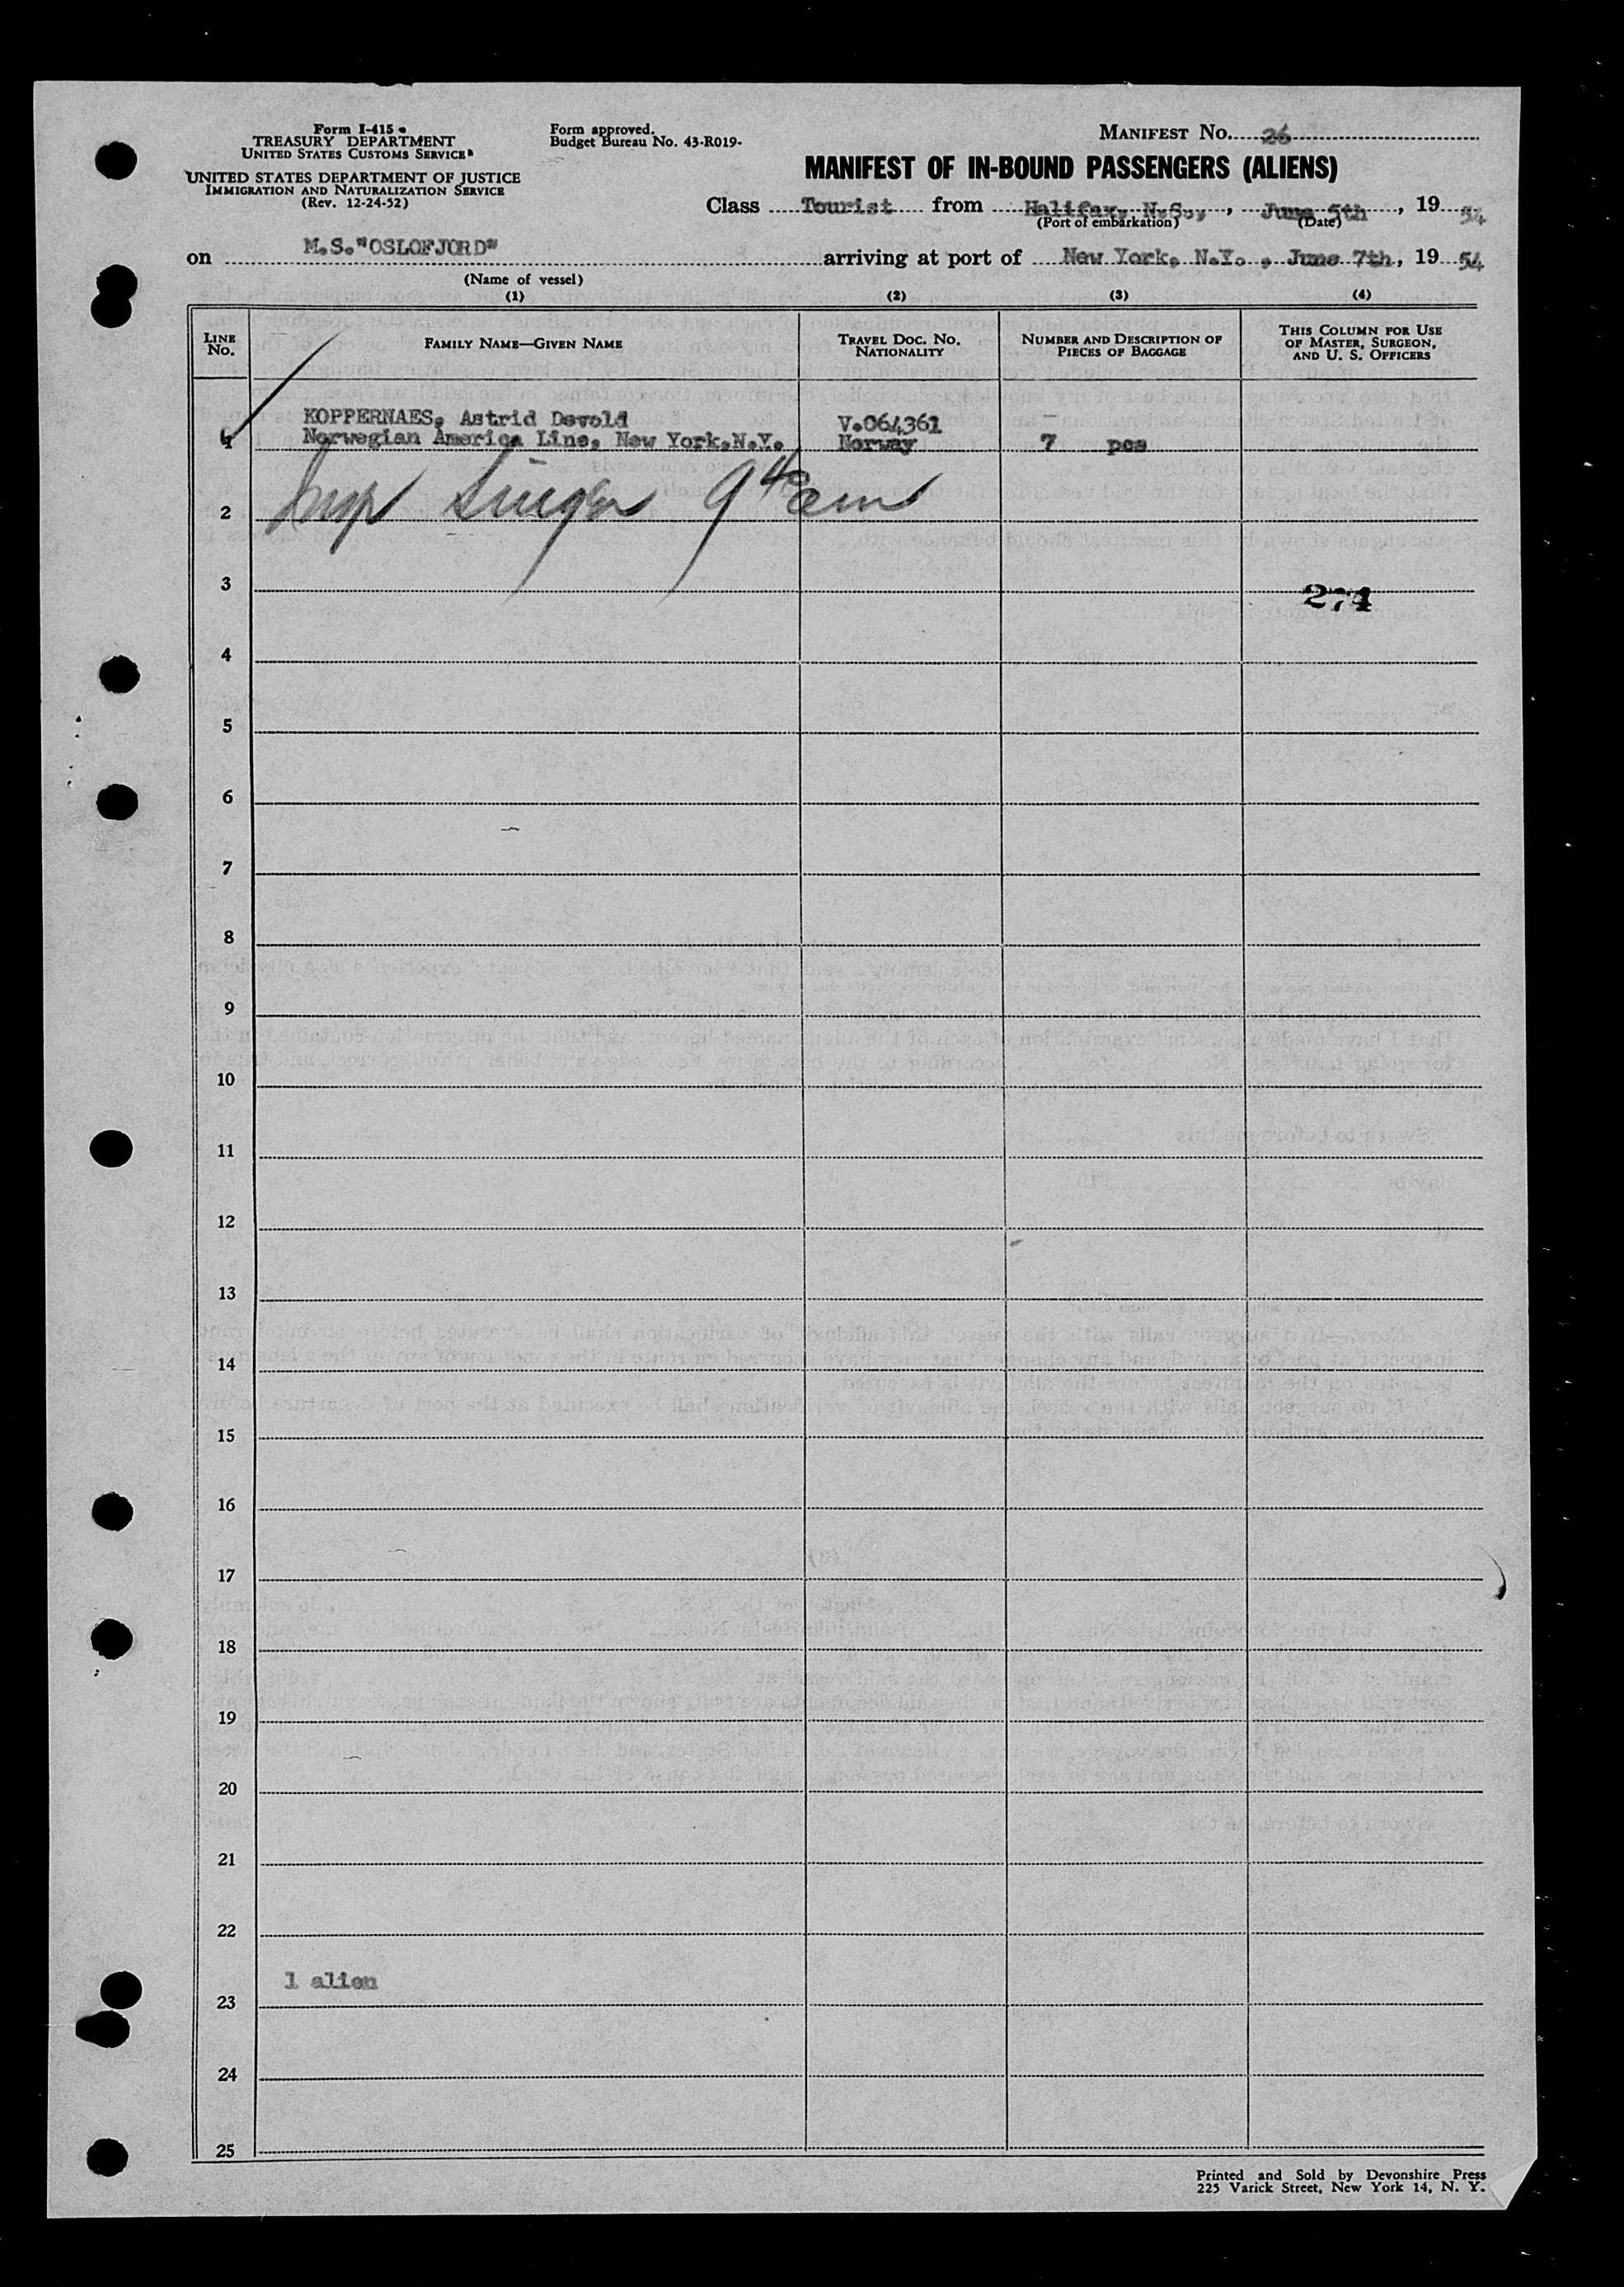 Form I-415
TREASURY DEPARTMENT
UNITED STATES CUSTOMS SERVICE
UNITED STATES DEPARTMENT OF JUSTICE
IMMIGRATION AND NATURALIZATION SERVICE
(Rev. 12-24-52)
Form approved.
Budget Bureau No. 43-R019-
MANIFEST No. 26
MANIFEST OF IN-BOUND PASSENGERS (ALIENS)
Class Tourist from Halifax, N.S., , June 5th, 19 54
(Port of embarkation) (Date)
on M.S."OSLOFJORD" arriving at port of New York, N.Y. , June 7th, 19 54
(Name of vessel)
(1) (2) (3) (4)
LINE No. FAMILY NAME—GIVEN NAME TRAVEL DOC. No. NATIONALITY NUMBER AND DESCRIPTION OF PIECES OF BAGGAGE THIS COLUMN FOR USE OF MASTER, SURGEON, AND U. S. OFFICERS
KOPPERNAES, Astrid Devold V.064361
1 Norwegian America Line, New York,N.Y. Norway 7 pcs
2 Insp Singer 9 40 am
3 274
4
5
6
7
8
9
10
11
12
13
14
15
16
17
18
19
20
21
22
1 alien
23
24
25
Printed and Sold by Devonshire Press
225 Varick Street, New York 14, N. Y.